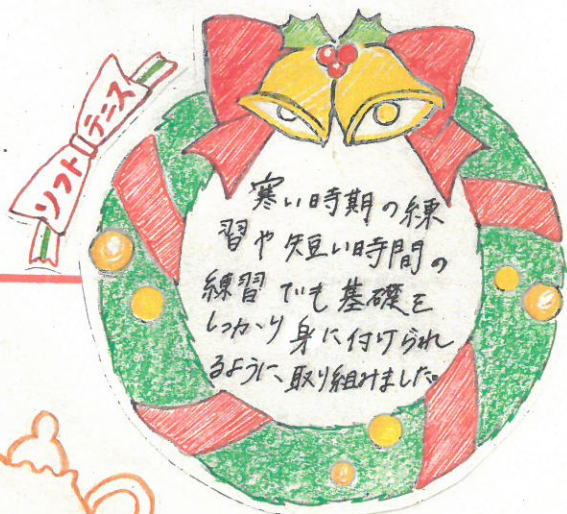 ソフトテニス
寒い時期の練
習や短い時間の
練習でも基礎を
しっかり身に付けられ
るように、取り組みました。